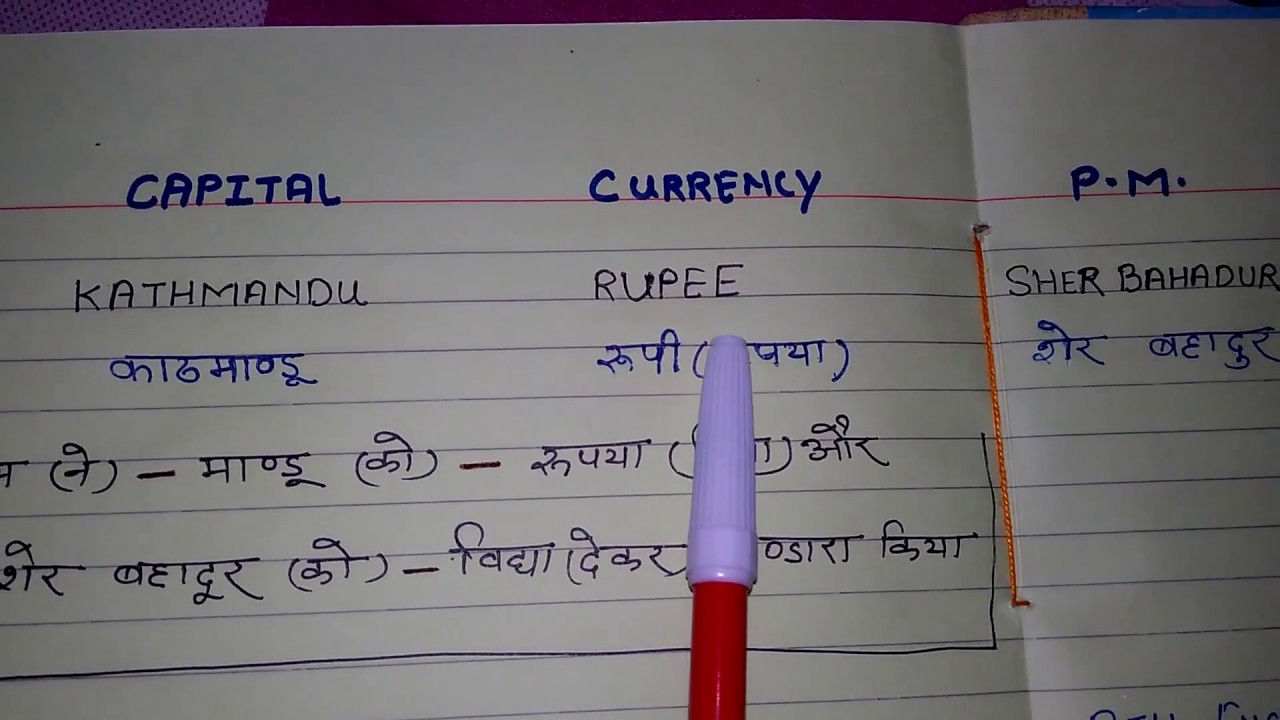 CAPITAL CURRENCY P.M.
KATHMANDU RUPEE SHER BAHADUR
काठमाण्डू रूपी ( पया) शेर बहादुर
(ने) – माण्डू (को) – रूपया ( ा) और
शेर बहादूर (को) – विद्या (देकर) ण्डारा किया